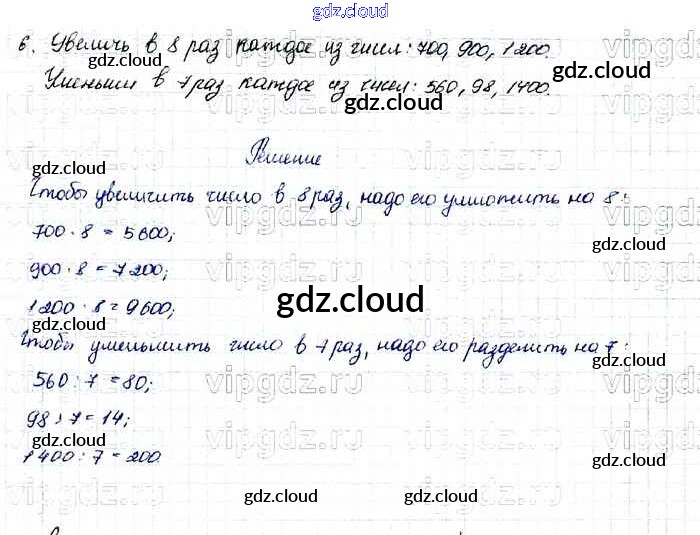 gdz.cloud
6. Увеличь в 8 раз каждое из чисел: 700, 900, 1 200.
Уменьши в 7 раз каждое из чисел: 560, 98, 1400.
gdz.cloud
gdz.cloud
gdz.cloud
Решение
gdz.cloud
gdz.cloud
Чтобы увеличить число в 8 раз, надо его умножить на 8:
700 · 8 = 5 600;
gdz.cloud
900 · 8 = 7 200;
gdz.cloud
1 200 · 8 = 9 600;
gdz.cloud
Чтобы уменьшить число в 7 раз, надо его разделить на 7:
gdz.cloud
560 : 7 = 80;
98 : 7 = 14;
gdz.cloud
1 400 : 7 = 200.
gdz.cloud
gdz.cloud
vipgdz.ru vipgdz.ru vipgdz.ru